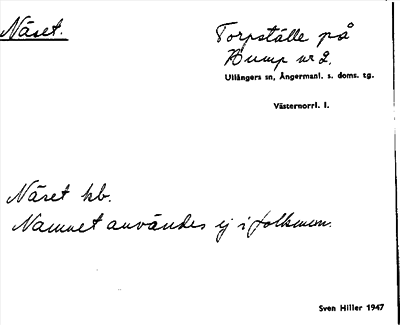 Näset.
Torpställe på
Bump nr 2.
Ullångers sn, Ångermanl. s. doms. tg.
Västernorrl. l.
Näset kb.
Namnet användes ej i folkmun.
Sven Hiller 1947